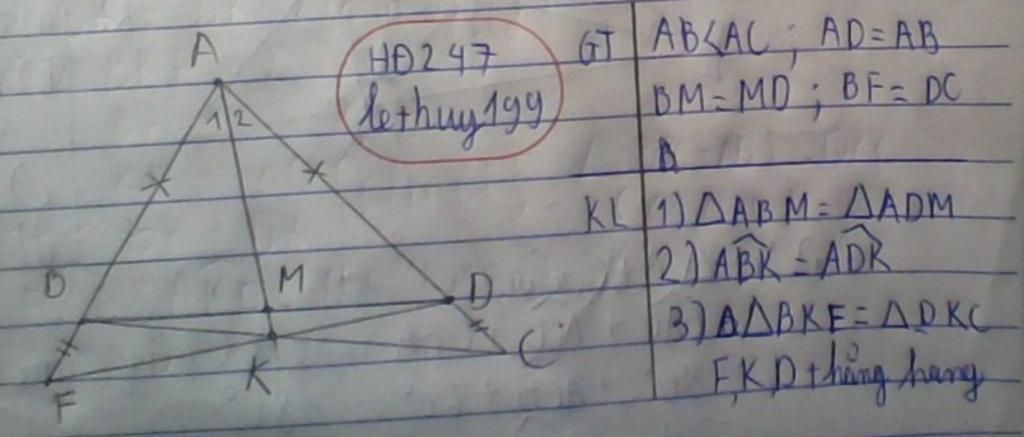 A
1 2
HĐ247
lethuy199
B
M
D
K
C
F
GT
AB<AC ; AD=AB
BM=MD ; BF=DC
B
KL
1) ΔABM=ΔADM
2) ABK̂=ADK̂
3) ΔΔBKF=ΔDKC
F,K,D thẳng hàng